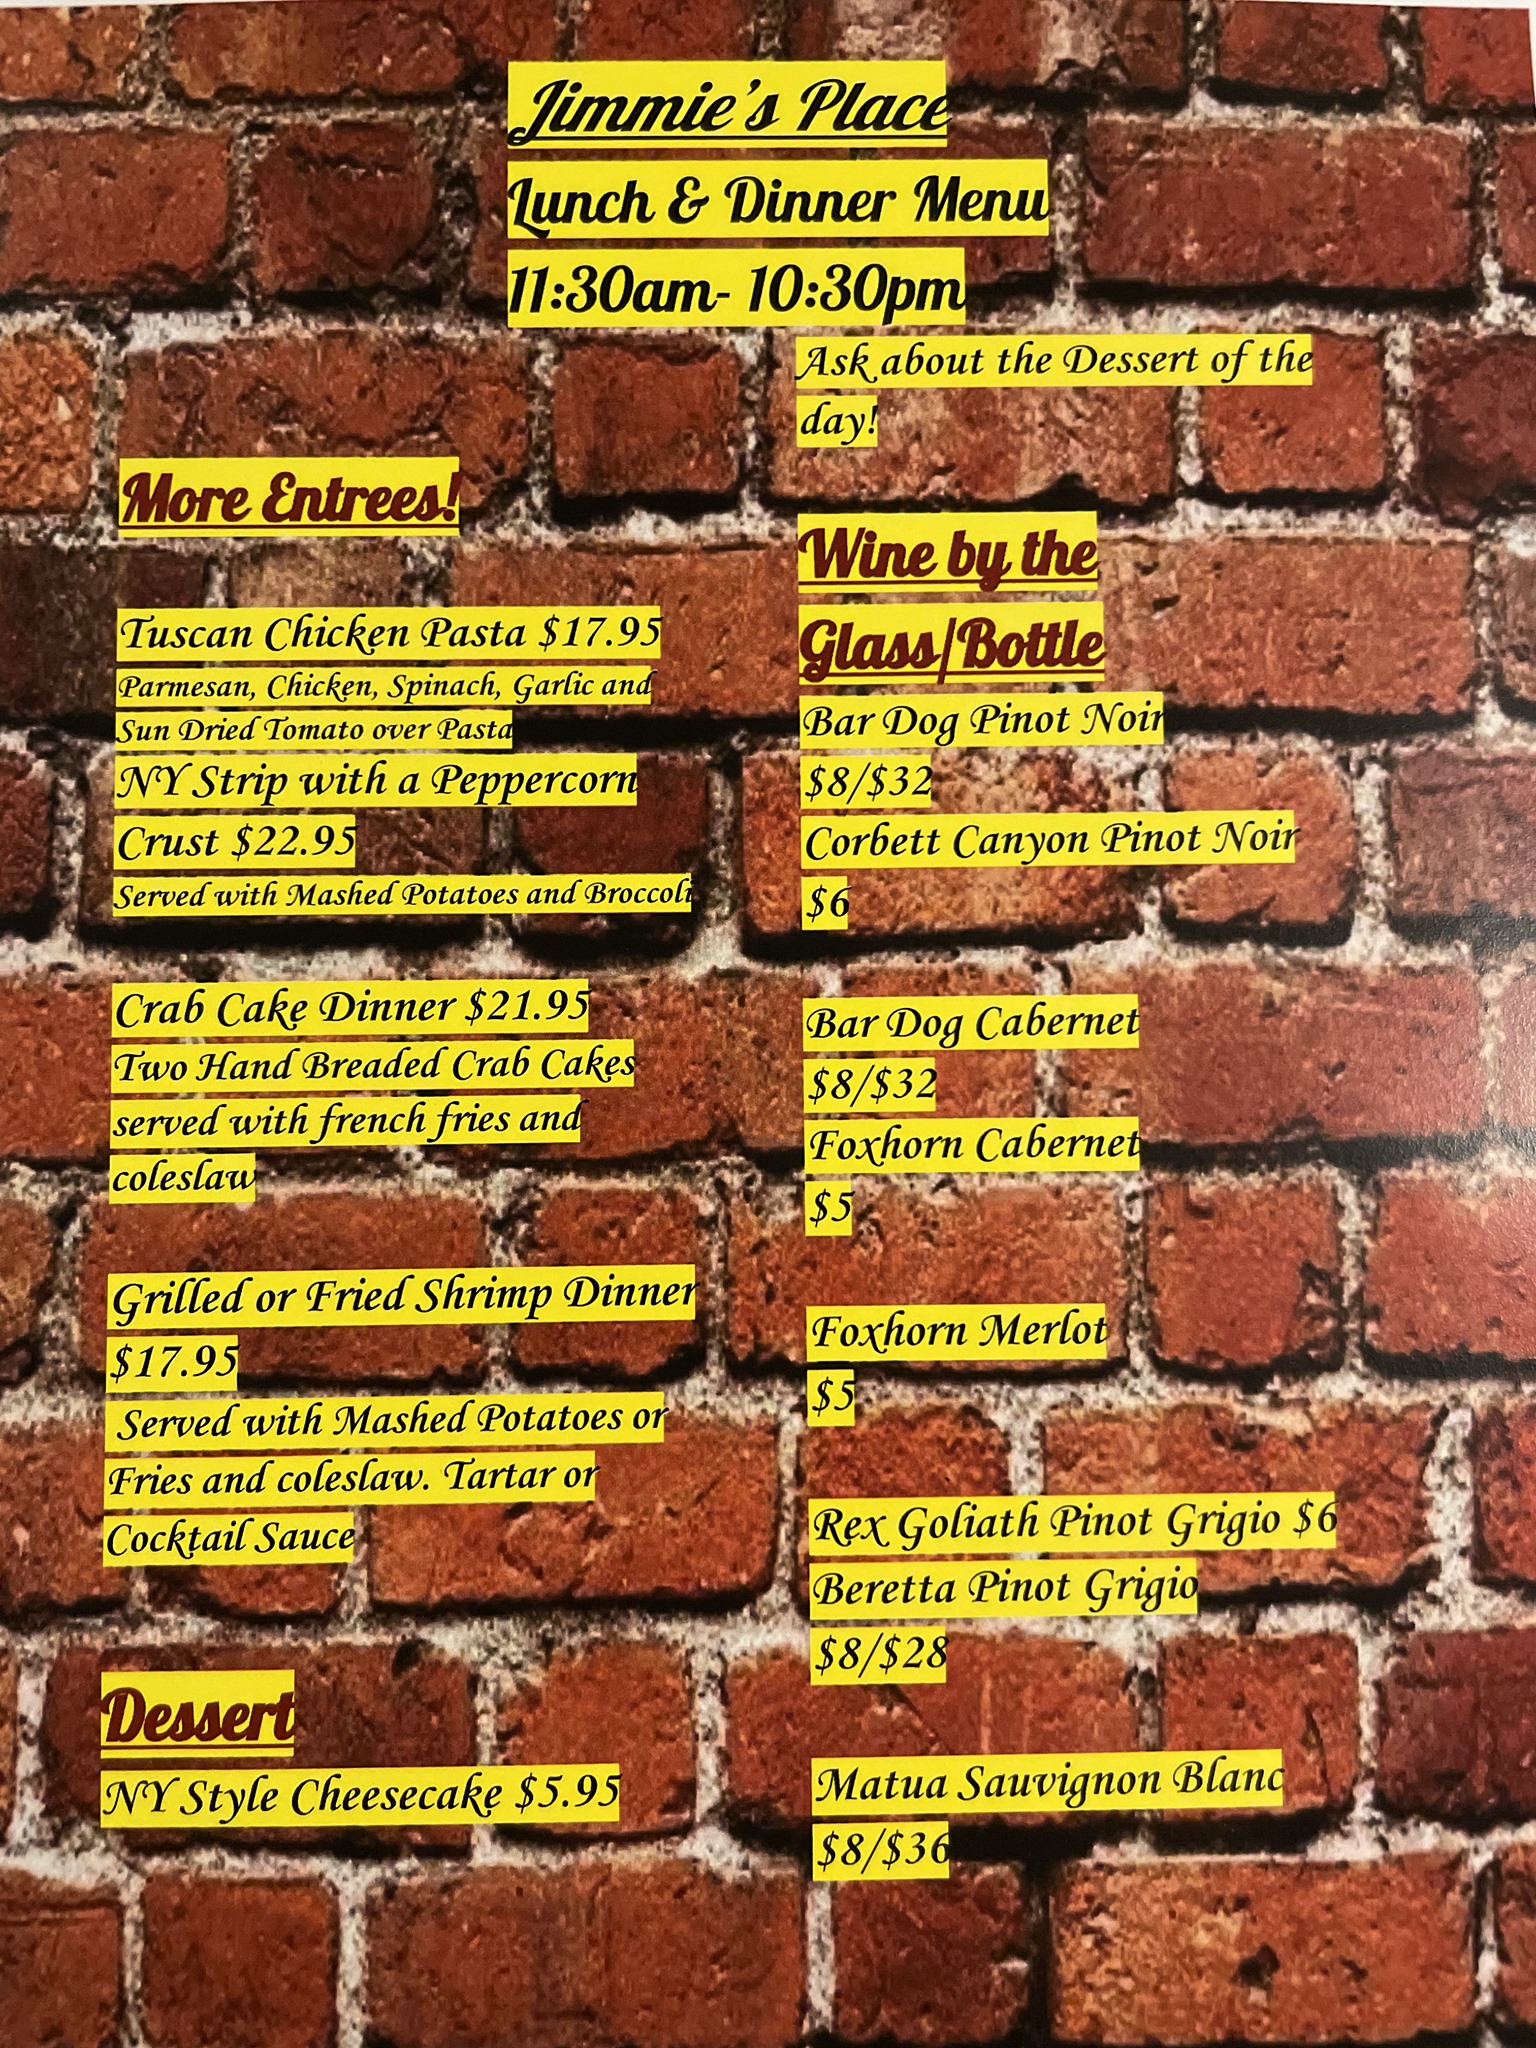 Jimmie's Place
Lunch & Dinner Menu
11:30am- 10:30pm
More Entrees!
Tuscan Chicken Pasta $17.95
Parmesan, Chicken, Spinach, Garlic and
Sun Dried Tomato over Pasta
NY Strip with a Peppercorn
Crust $22.95
Served with Mashed Potatoes and Broccoli
Crab Cake Dinner $21.95
Two Hand Breaded Crab Cakes
served with french fries and
coleslaw
Grilled or Fried Shrimp Dinner
$17.95
Served with Mashed Potatoes or
Fries and coleslaw. Tartar or
Cocktail Sauce
Dessert
NY Style Cheesecake $5.95
Ask about the Dessert of the
day!
Wine by the
Glass/Bottle
Bar Dog Pinot Noir
$8/$32
Corbett Canyon Pinot Noir
$6
Bar Dog Cabernet
$8/$32
Foxhorn Cabernet
$5
Foxhorn Merlot
$5
Rex Goliath Pinot Grigio $6
Beretta Pinot Grigio
$8/$28
Matua Sauvignon Blanc
$8/$36